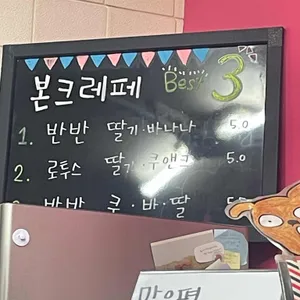 본크레페 Best 3
1. 반반 딸기·바나나 5.0
2. 로투스 딸기·쿠앤크 5.0
반반 쿠·바·딸